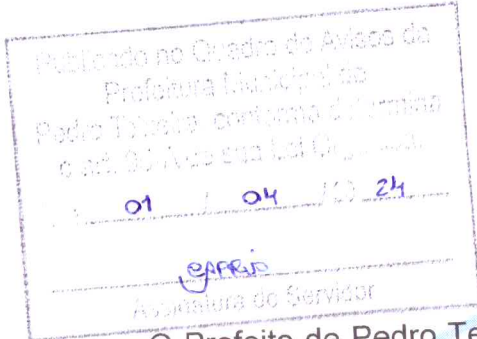 Publicado no Quadro de Avisos da
Prefeitura Municipal de
Pedro Teixeira conforme determina
o art. 90 A de sua Lei
01 / 04 / 24
Assinatura do Servidor
O Prefeito de Pedro Te